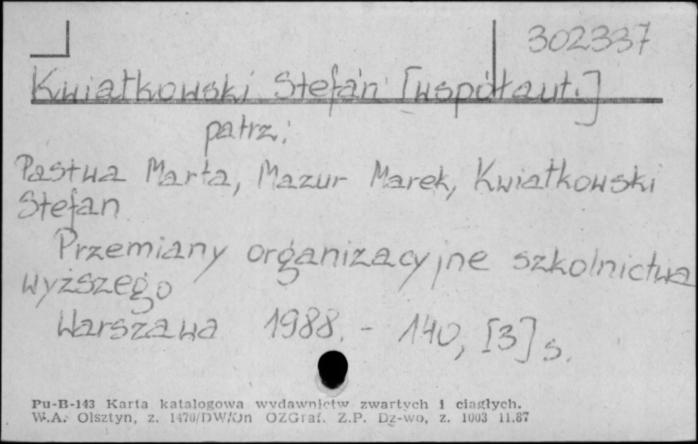 302337
Kwiatkowski Stefan [współaut.]
patrz:
Pastwa Marta, Mazur Marek, Kwiatkowski
Stefan
Przemiany organizacyjne szkolnictwa
wyższego
Warszawa 1988. - 140, [3] s.
Pu-B-143 Karta katalogowa wydawnictw zwartych i ciągłych.
W.A. Olsztyn, z. 1470/DW/On OZGraf. Z.P. Dz-wo, z. 1003 11.87